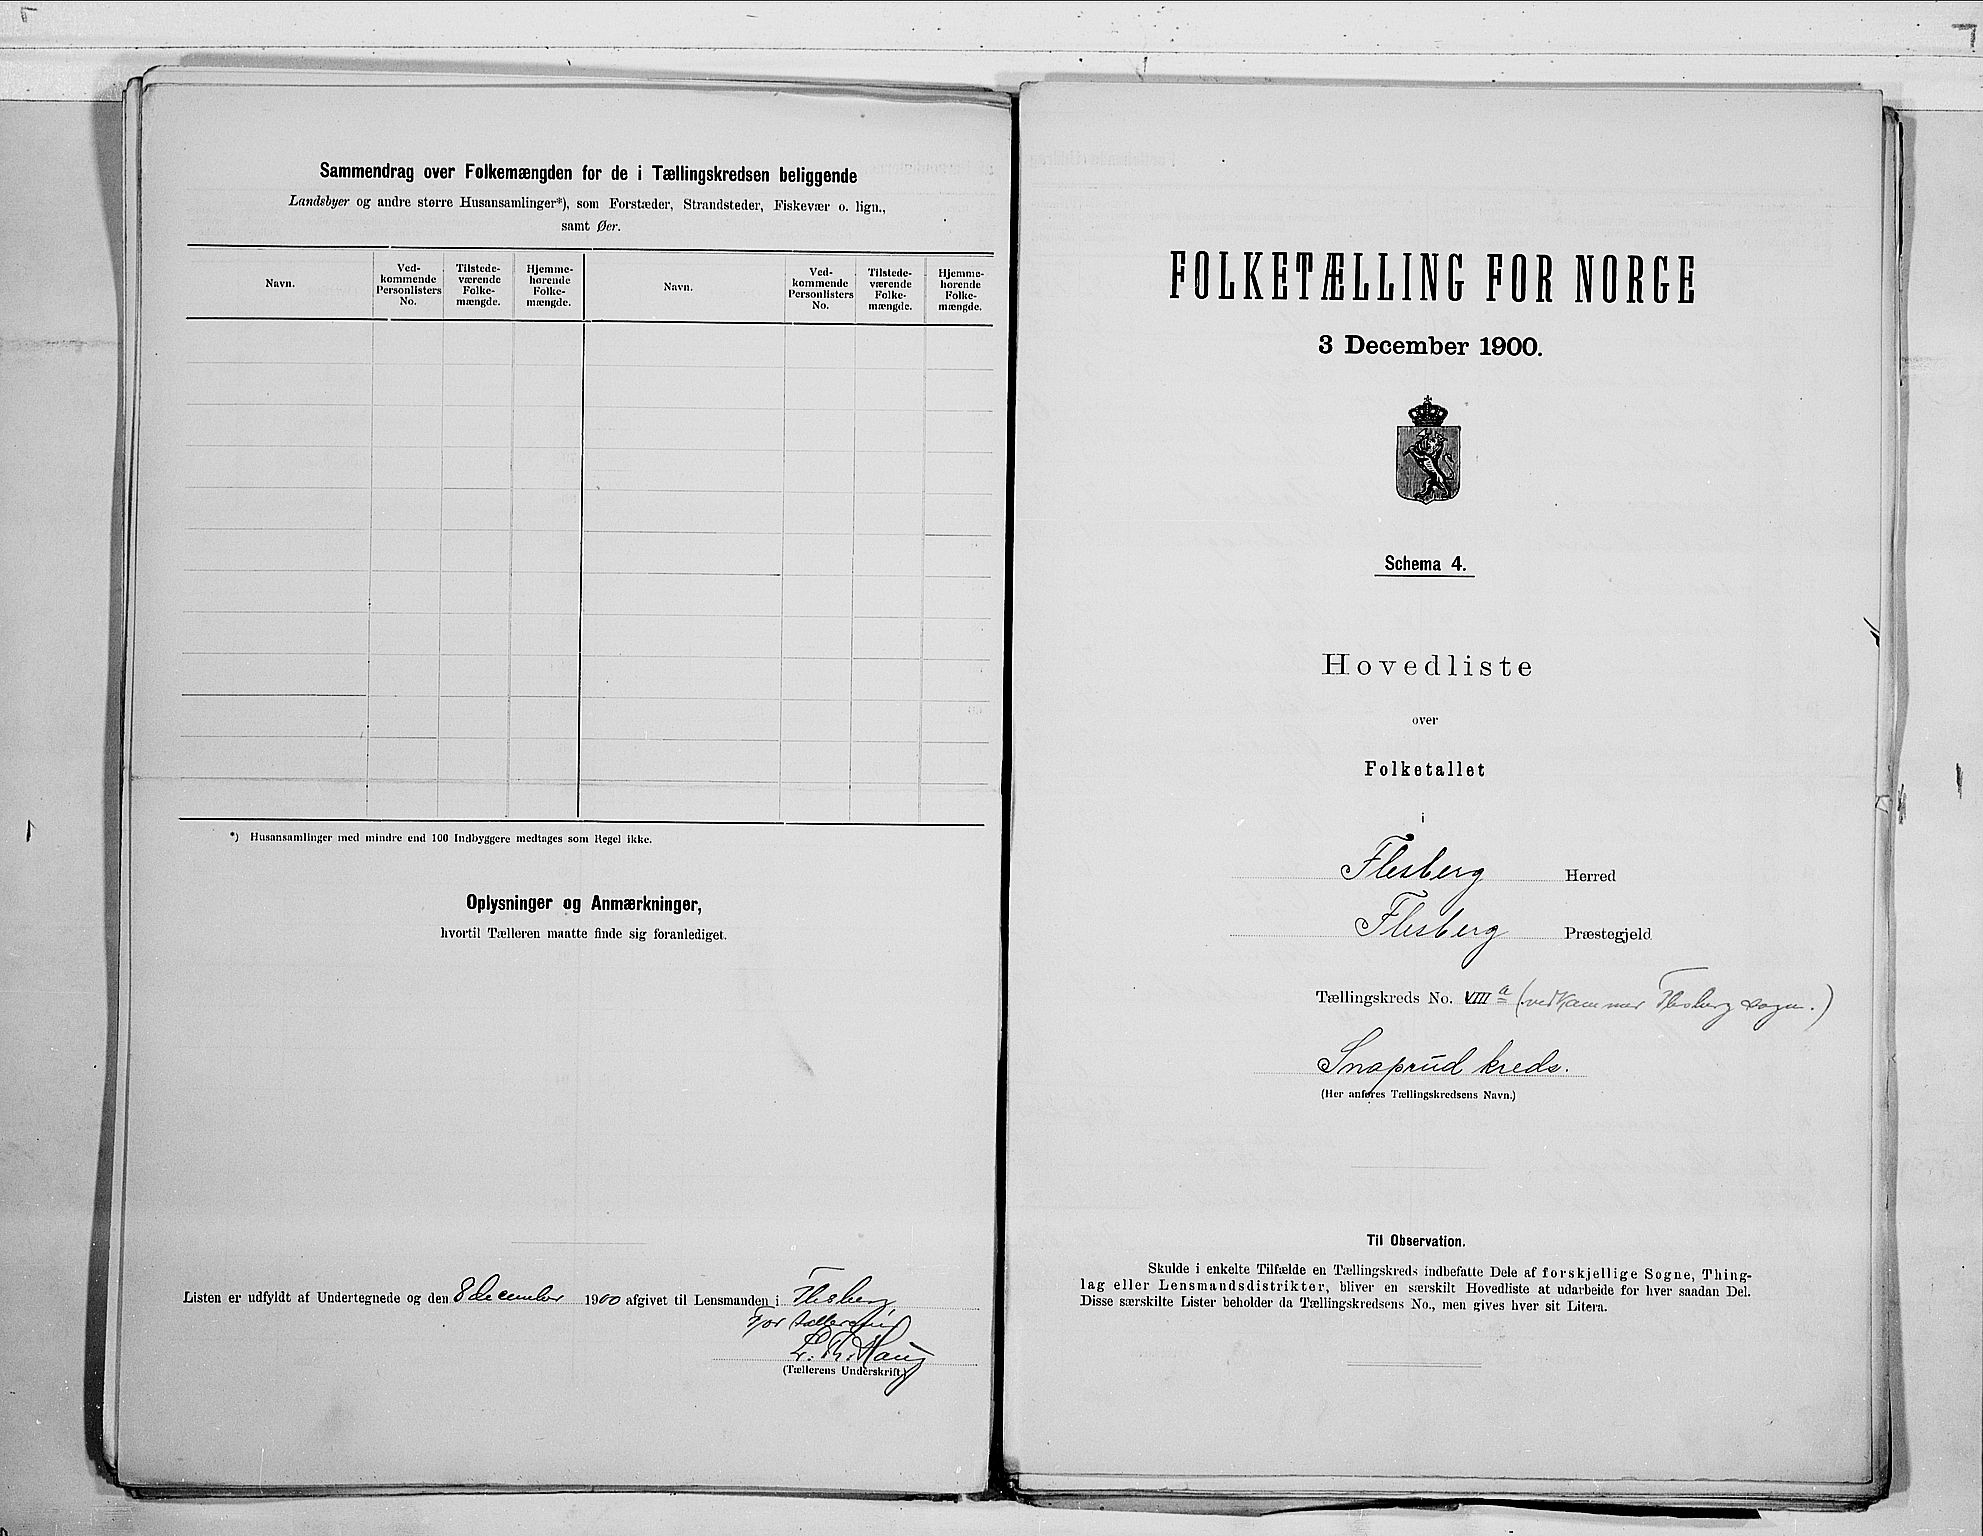 Sammendrag over Folkemængden for de i Tællingskredsen beliggende
Landsbyer og andre større Husansamlinger*), som Forstæder, Strandsteder, Fiskevær o. lign.,
samt Øer.
Navn.
Ved-
kommende
Personlisters
No.
Tilstede-
værende
Folke-
mængde.
Hjemme-
hørende
Folke-
mængde.
Navn.
Ved-
kommende
Personlisters
No.
Tilstede-
værende
Folke-
mængde.
Hjemme-
hørende
Folke-
mængde.
*) Husansamlinger med mindre end 100 Indbyggere medtages som Regel ikke.
Oplysninger og Anmærkninger,
hvortil Tælleren maatte finde sig foranlediget.
Listen er udfyldt af Undertegnede og den 8 december 1900 afgivet til Lensmanden i Flesberg
For
Haug
(Tællerens Underskrift)
FOLKETÆLLING FOR NORGE
3 December 1900.
Schema 4.
Hovedliste
over
Folketallet
i
Flesberg Herred
Flesberg Præstegjeld
Tællingskreds No. VIII a (vedkommer Flesberg sogn.)
Snaprud kreds.
(Her anføres Tællingskredsens Navn.)
Til Observation.
Skulde i enkelte Tilfælde en Tællingskreds indbefatte Dele af forskjellige Sogne, Thing-
lag eller Lensmandsdistrikter, bliver en særskilt Hovedliste at udarbeide for hver saadan Del.
Disse særskilte Lister beholder da Tællingskredsens No., men gives hver sit Litera.